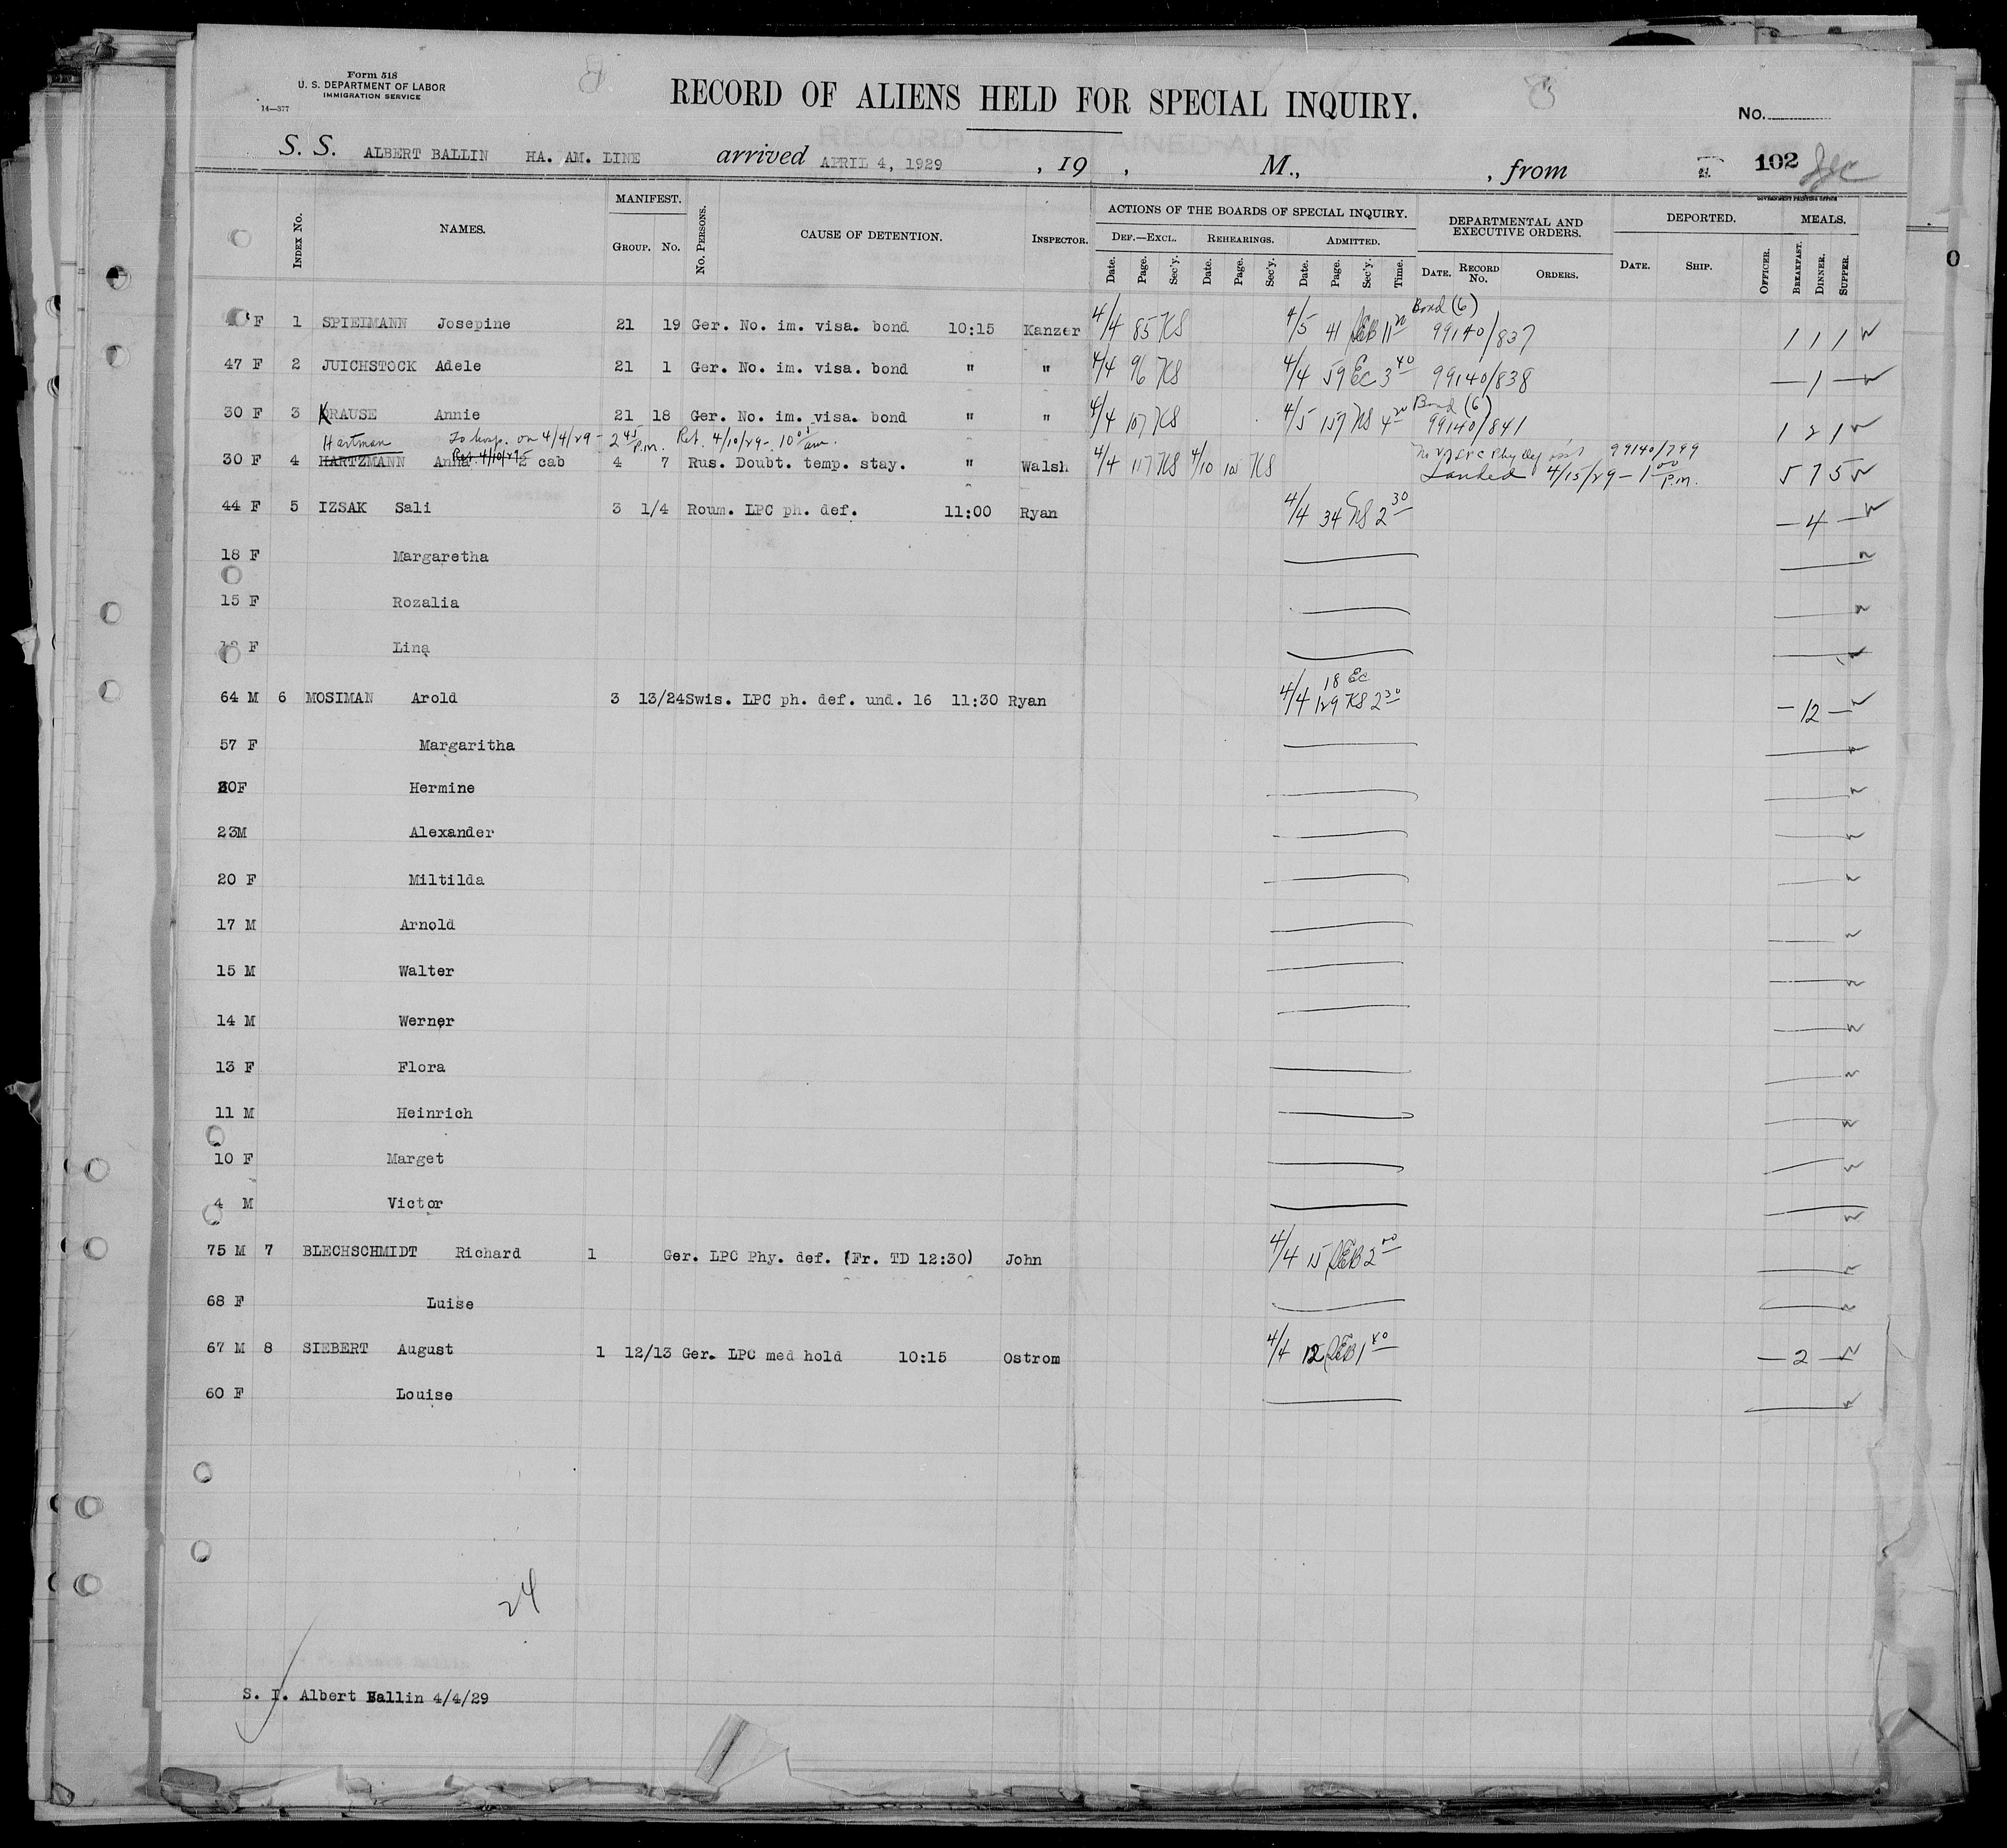 Form 518
U. S. DEPARTMENT OF LABOR
IMMIGRATION SERVICE
14—377
RECORD OF ALIENS HELD FOR SPECIAL INQUIRY.
No.
S. S. ALBERT BALLIN HA. AM. LINE arrived APRIL 4, 1929 , 19 , M., , from 102
GOVERNMENT PRINTING OFFICE
Index No. NAMES. MANIFEST. Group. No. No. Persons. CAUSE OF DETENTION. Inspector. ACTIONS OF THE BOARDS OF SPECIAL INQUIRY. Def.—Excl. Date. Page. Sec'y. Rehearings. Date. Page. Sec'y. Admitted. Date. Page. Sec'y. Time. DEPARTMENTAL AND EXECUTIVE ORDERS. Date. Record No. Orders. DEPORTED. Date. Ship. Officer. MEALS. Breakfast. Dinner. Supper.
Bond (6)
F 1 SPIEIMANN Josepine 21 19 Ger. No. im. visa. bond 10:15 Kanzer 4/4 85 KS 4/5 41 DEB 11 99140/837 1 1 1
47 F 2 JUICHSTOCK Adele 21 1 Ger. No. im. visa. bond " " 4/4 96 KS 4/4 59 EC 3 40 99140/838 — 1 —
Bond (6)
30 F 3 KRAUSE Annie 21 18 Ger. No. im. visa. bond " " 4/4 107 KS 4/5 157 KS 4 20 99140/841 1 2 1
Hartman To hosp. on 4/4/29 - 2 45 P.m. Ret. 4/10/29 - 10 am. 99140/799
Ret. 4/10/29
30 F 4 HARTZMANN Anna 2 cab 4 7 Rus. Doubt. temp. stay. " Walsh 4/4 117 KS 4/10 KS Landed 4/15/29 - 1 00 P.m. 5 7 5
44 F 5 IZSAK Sali 3 1/4 Roum. LPC ph. def. 11:00 Ryan 4/4 34 KS 2 30 — 4 —
18 F Margaretha
15 F Rozalia
F Lina
18 EC
64 M 6 MOSIMAN Arold 3 13/24 Swis. LPC ph. def. und. 16 11:30 Ryan 4/4 129 KS 2 30 — 12 —
57 F Margaritha
30F Hermine
23M Alexander
20 F Miltilda
17 M Arnold
15 M Walter
14 M Werner
13 F Flora
11 M Heinrich
10 F Marget
4 M Victor
75 M 7 BLECHSCHMIDT Richard 1 Ger. LPC Phy. def. (Fr. TD 12:30) John 4/4 15 DEB 2 00
68 F Luise
67 M 8 SIEBERT August 1 12/13 Ger. LPC med hold 10:15 Ostrom 4/4 12 DEB 1 40 — 2 —
60 F Louise
24
S. I. Albert Ballin 4/4/29